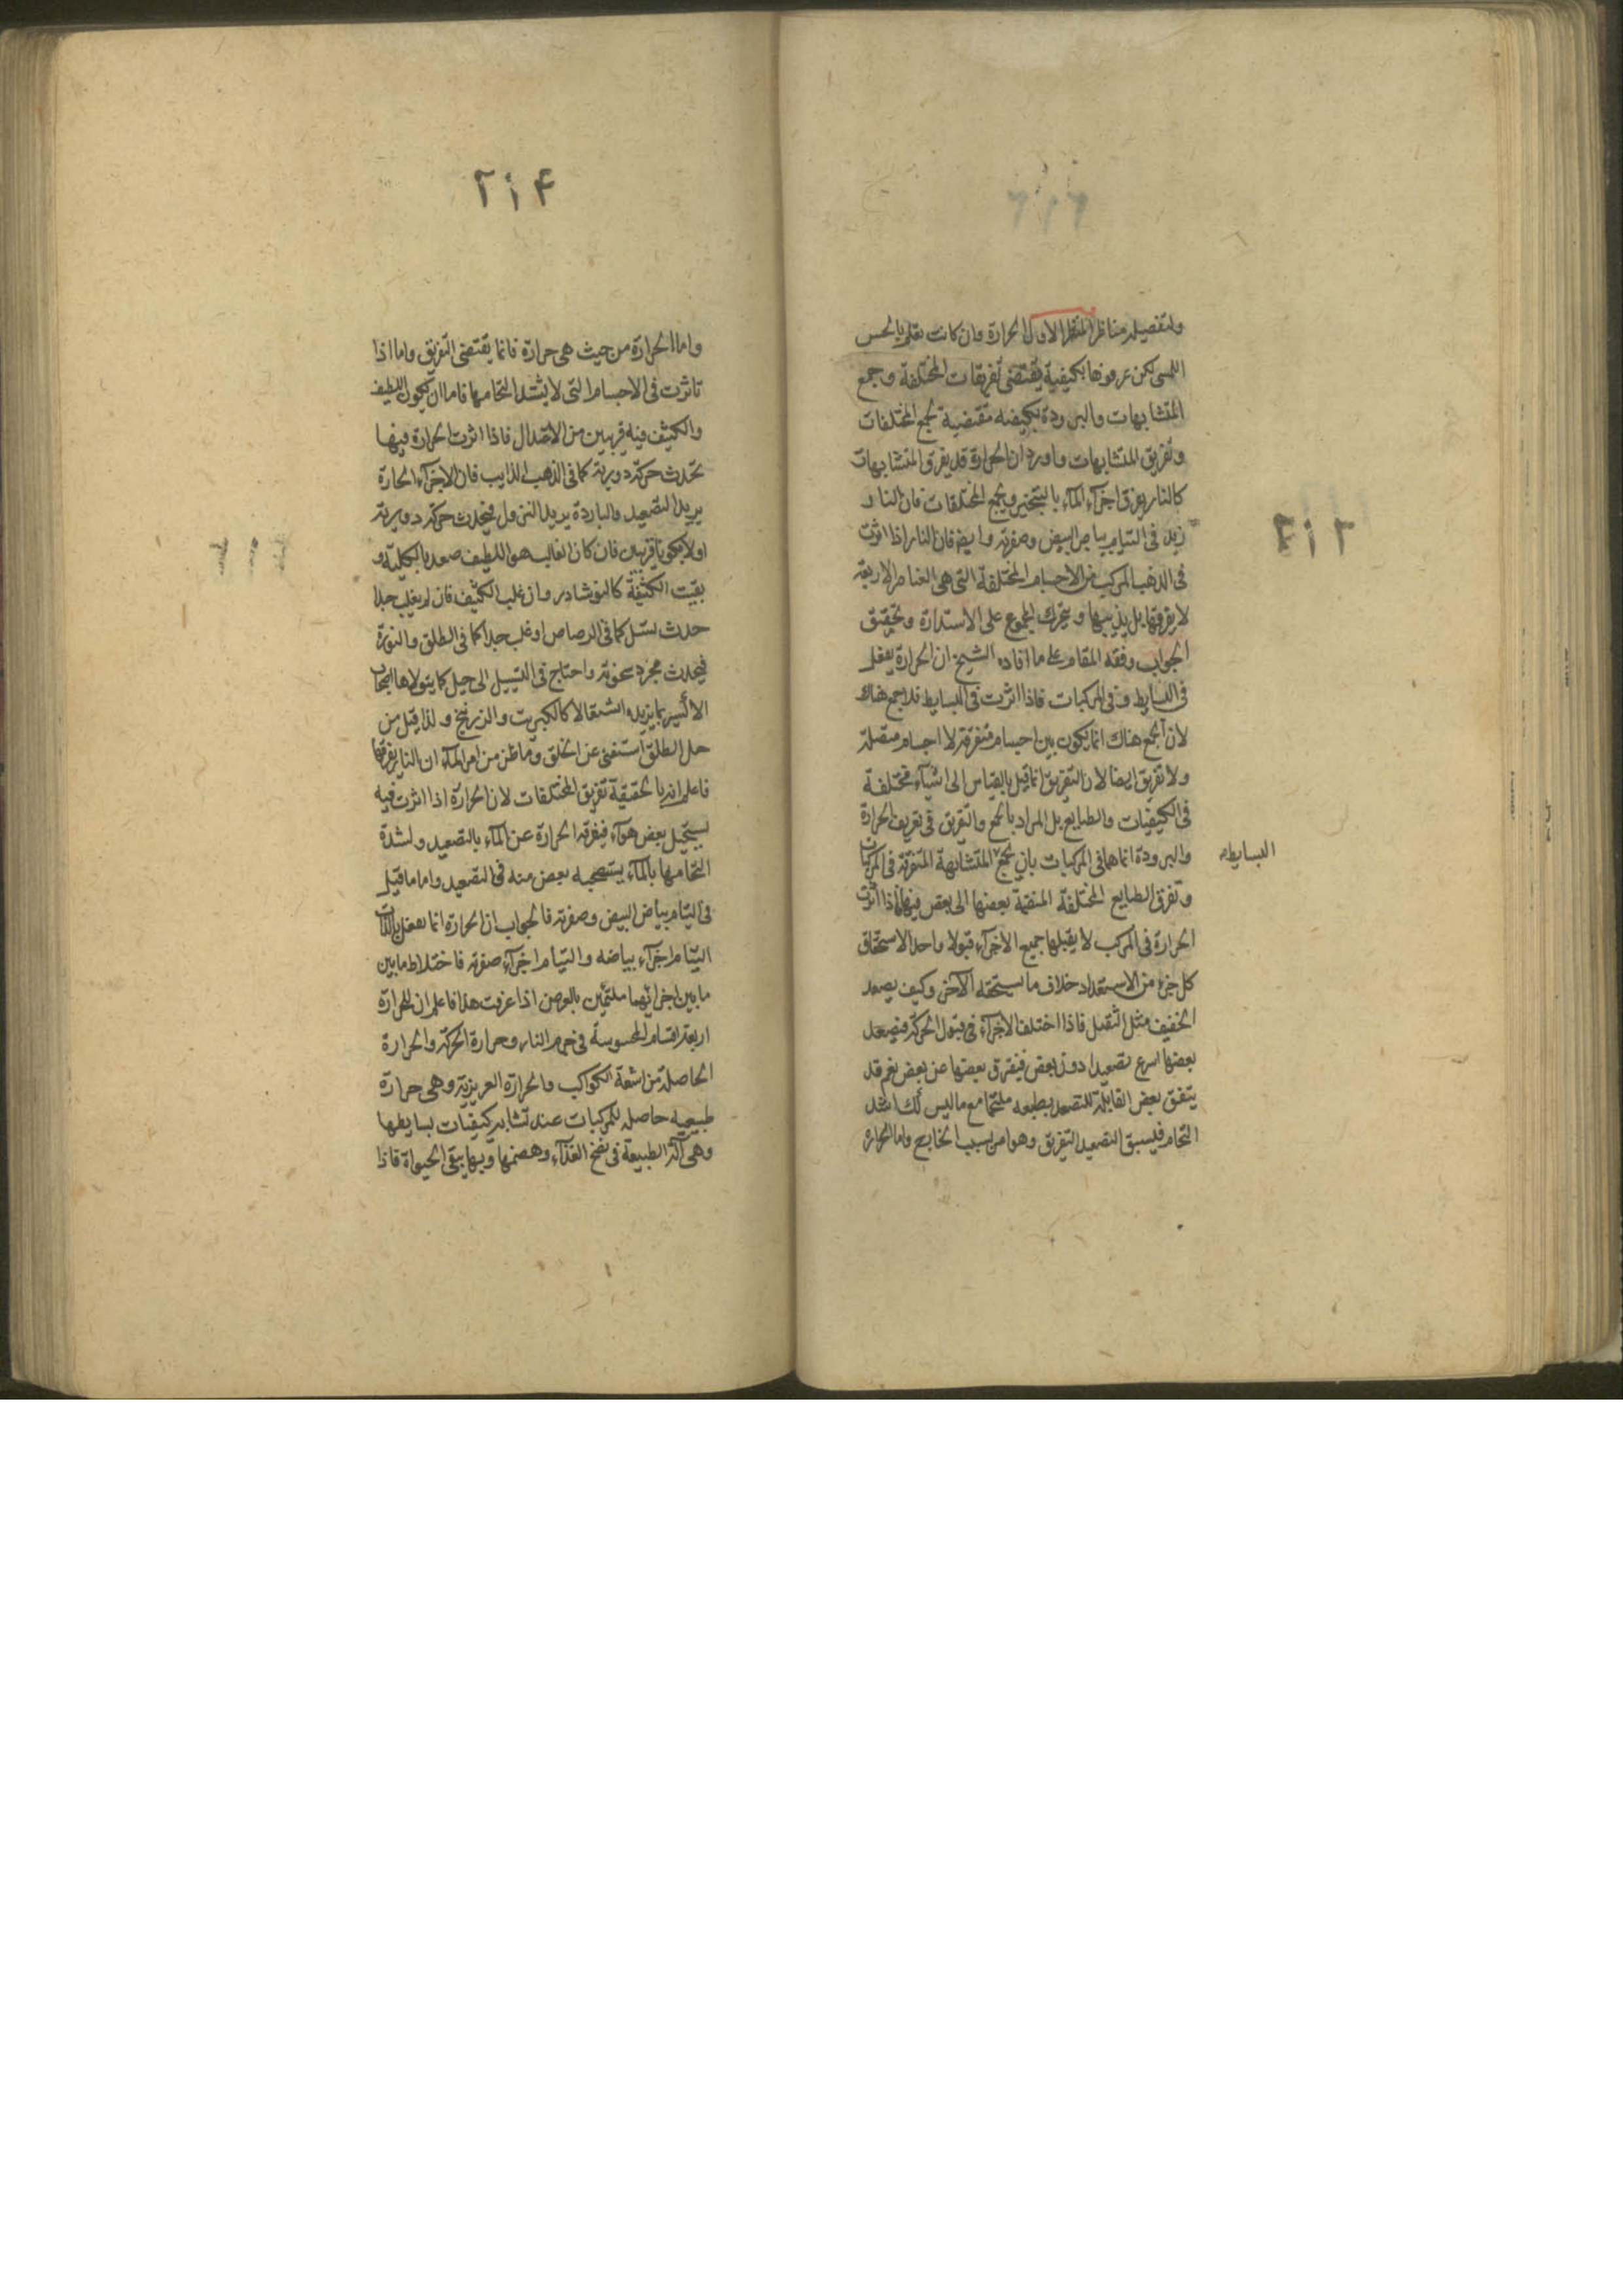 ولتفصيله مناظر المنظر الاول الحرارة وان كانت تعلم بالحس
اللمسى لكن عرفوها بكيفية يقتضى تفريقات المختلفة وجمع
المتشابهات والبرودة بكيفيه مقتضية لجمع المختلفات
وتفريق المتشابهات واورد ان الحرارة قد يفرق المتشابهات
كالنار يفرق اجزآء المآء بالتبخير ويجمع المختلفات فان النار
زيد فى التيام بياض البيض وصفرته وايضه فان النار اذا اثرت
فى الذهب المركب من الاجسام المختلفة التى هى العناصر الاربعة
لا يفرقها بل يذيبها ويتحرك المجموع على الاستدارة وتحقيق
الجواب وفقه المقام على ما افاده الشيخ ان الحرارة يفعل
فى البسايط وفى المركبات فاذا اثرت فى البسايط فلا جمع هناك
لان الجمع هناك انما يكون بين اجسام متفرقة لا اجسام متصلة
ولا تفريق ايضا لان التفريق انما قيل بالقياس الى اشيآء مختلفة
فى الكيفيات والطبايع بل المراد بالجمع والتفريق فى تعريف الحرارة
والبرودة انما هما فى المركبات بان يجمع المتشابهة المتفرقة فى المركبات
البسايط
وتفرق الطبايع المختلفة المنضمة بعضها الى بعض فيها فاذا اثرت
الحرارة فى المركب لا يقبلها جميع الاجزآء قبولا واحدا لاستحقاق
كل جزء من الاستعداد خلاف ما يستحقه الآخر وكيف يصعد
الخفيف مثل الثقيل فاذا اختلف الاجزآء فى قبول الحركة فيصعد
بعضها اسرع تصعيدا دون بعض فيفرق بعضها عن بعض نعم قد
يتفق بعض القابلة للتصعد بطبعه ملتحما مع ما ليس كك اشد
التحام فيسبق التصعيد التفريق وهو امر بسبب الخارج واما الحرارة
٢١٣
٢١٤
واما الحرارة من حيث هى حرارة فانما يقتضى التفريق واما اذا
تاثرت فى الاجسام التى لا يشتد التحامها فاما ان يكون اللطيف
والكثيف فيه قريبين من الاعتدال فاذا اثرت الحرارة فيها
تحدث حركة دورية كما فى الذهب الذايب فان الاجزآء الحارة
يريد التصعيد والباردة يريد النزول فيحدث حركة دورية
اولا يكونا قريبين فان كان الغالب هو اللطيف صعد بالكلية و
بقيت الكثيفة كالنوشادر وان غلب الكثيف فان لم يغلب جدا
حدث تسيل كما فى الرصاص او غلب جدا كما فى الطلق والنورة
فيحدث مجرد سخونة واحتاج فى التسييل الى حيل كما يتولاها اصحاب
الاكسير بما يزيده اشتعالا كالكبريت والزرنيخ ولذا قيل من
حل الطلق استغنى عن الخلق وما ظن من امر المآء ان النار يفرقها
فاعلم انه بالحقيقة تفريق المختلفات لان الحرارة اذا اثرت فيه
يستحيل بعض هوآء فيفرقه الحرارة عن المآء بالتصعيد ولشدة
التحامها بالمآء يستصحبه بعض منه فى التصعيد واما ما قيل
فى التيام بياض البيض وصفرته فالجواب ان الحرارة انما يفعل بالذات
التيام اجزآء بياضه والتيام اجزآء صفرته فاختلاط ما بين
ما بين اجزائهما ملتئمين بالعرض اذا عرفت هذا فاعلم ان للحرارة
اربعة اقسام المحسوسة فى جرم النار وحرارة الحركة والحرارة
الحاصلة من اشعة الكواكب والحرارة الغريزية وهى حرارة
طبيعيه حاصله للمركبات عند تشابه كيفيات بسايطها
وهى آلة الطبيعة فى نضج الغذآء وهضمها وبها يبقى الحيواة فاذا